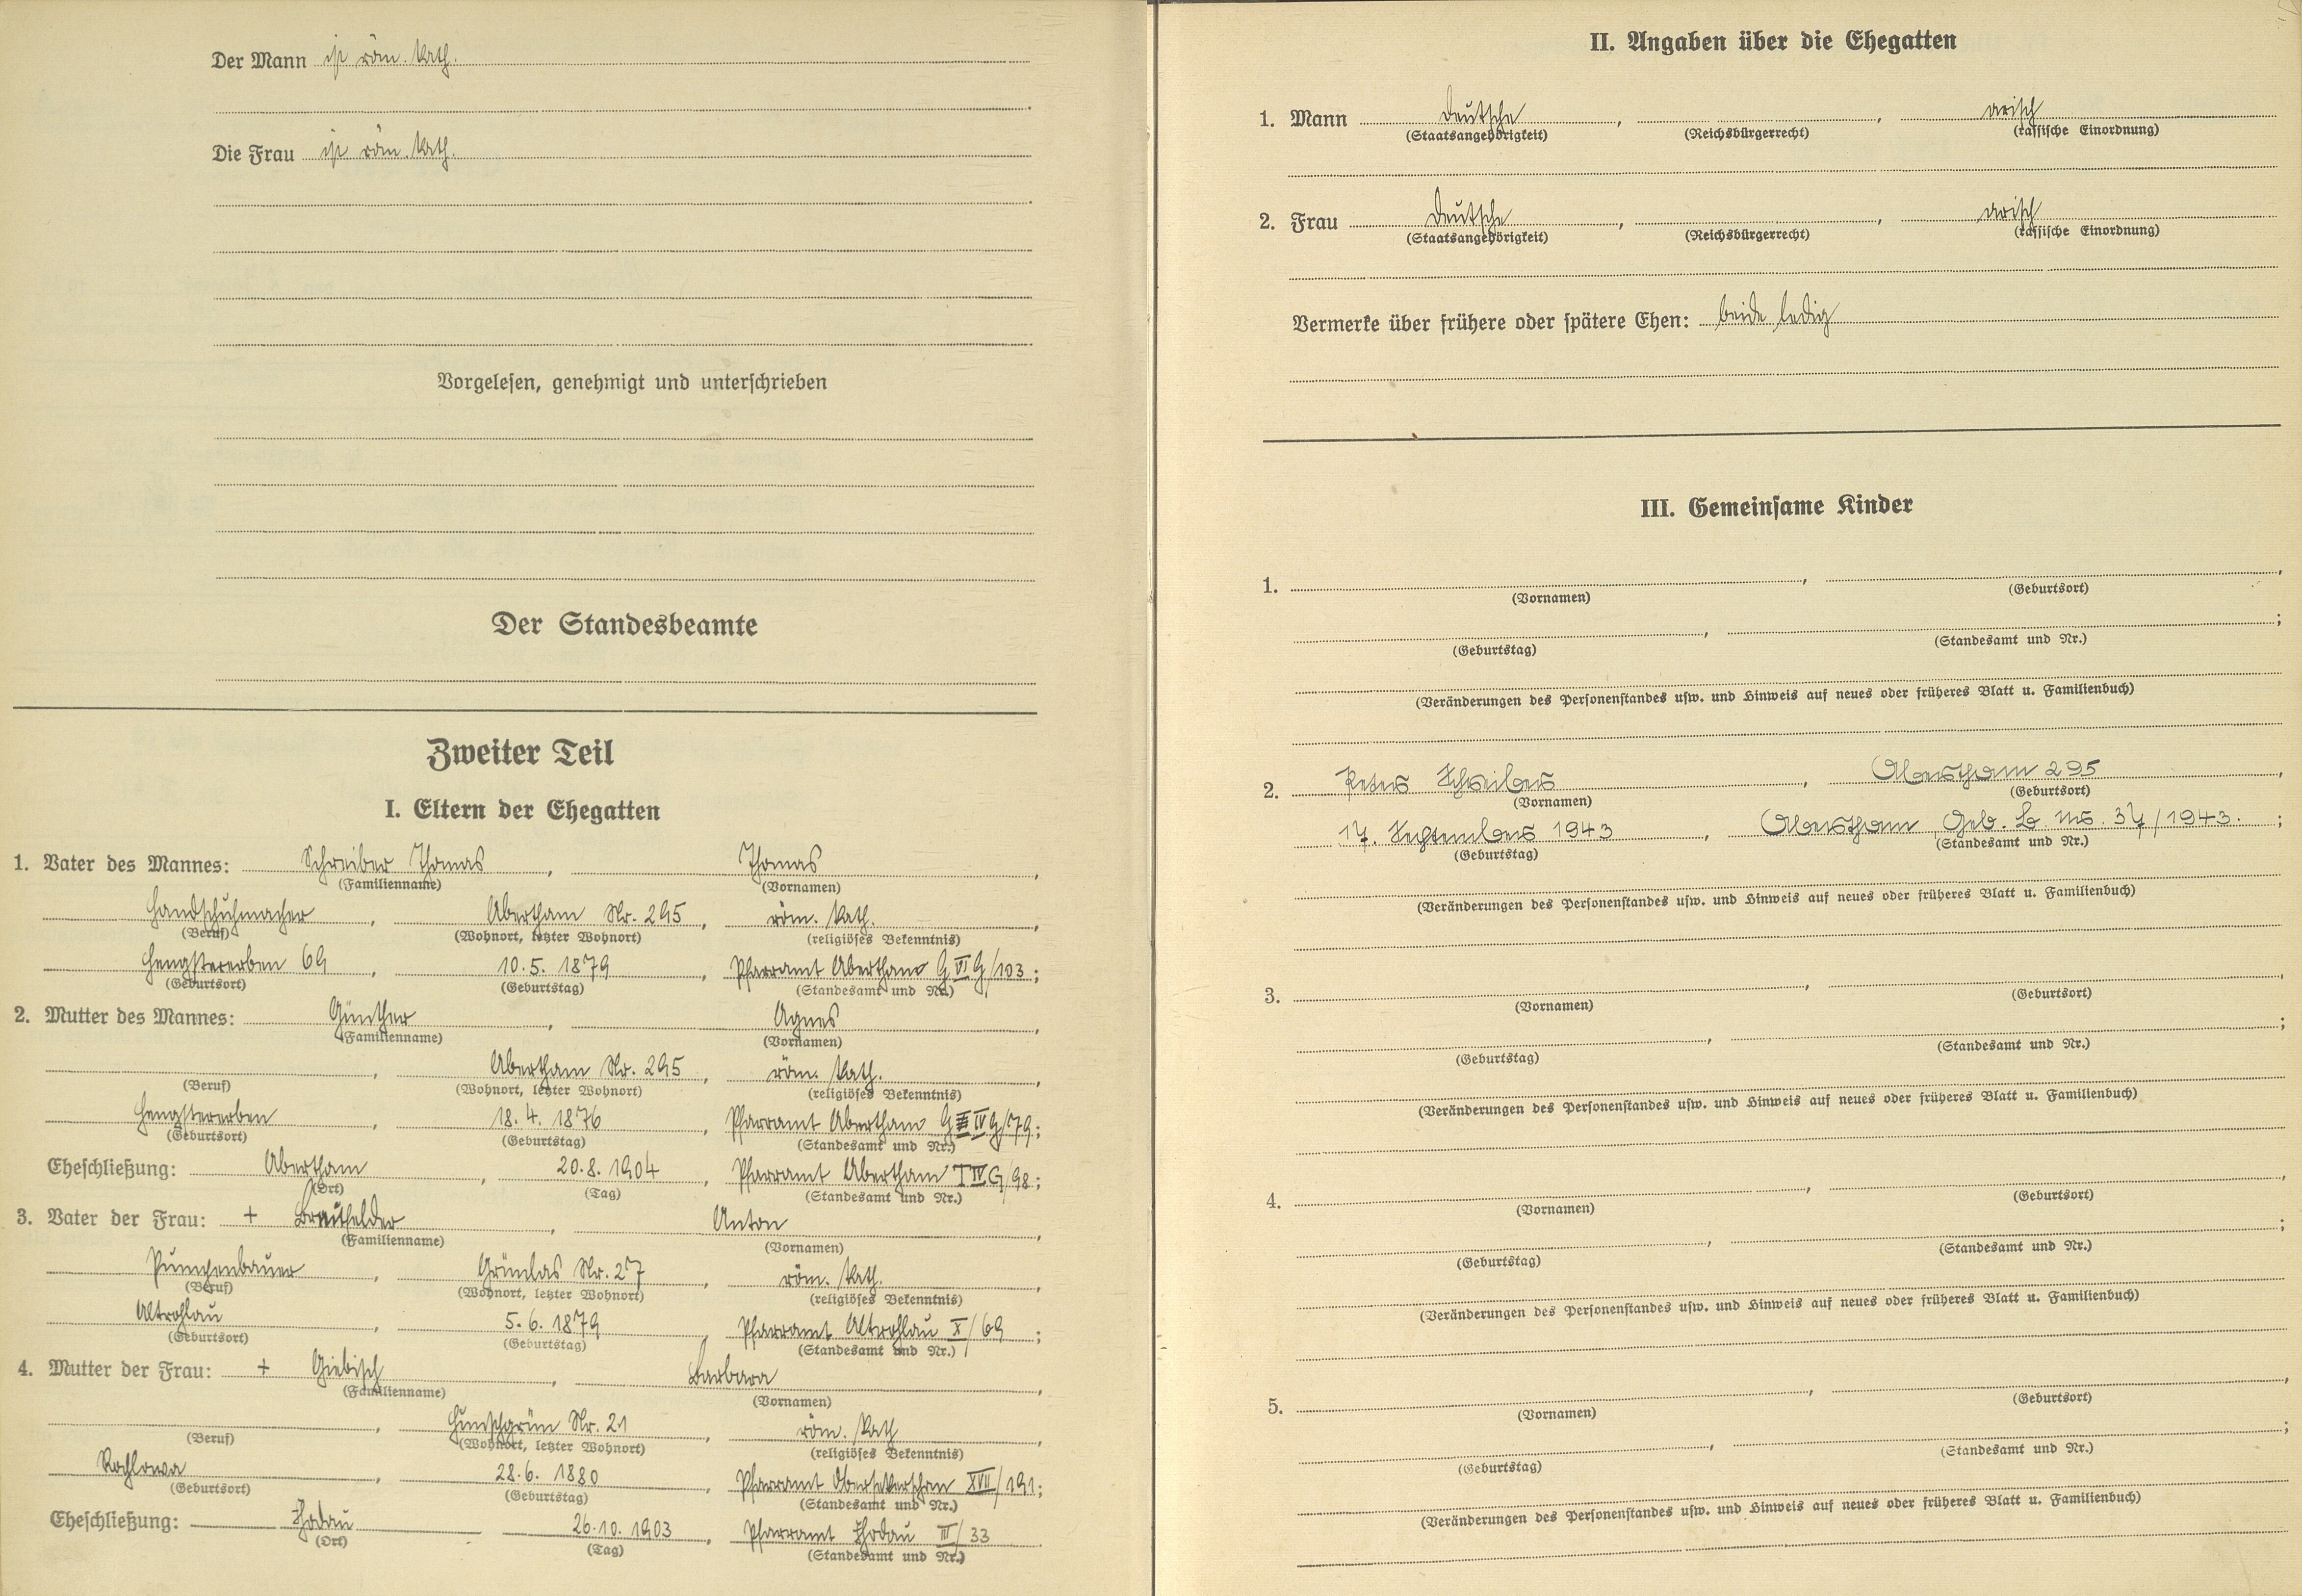 Der Mann ist röm. kath.
Die Frau ist röm. kath.
Vorgelesen, genehmigt und unterschrieben
Der Standesbeamte
Zweiter Teil
I. Eltern der Ehegatten
1. Vater des Mannes: Schreiber Thomas, Thomas,
(Familienname) (Vornamen)
Handschuhmacher, Abertham Nr. 295, röm. kath.,
(Beruf) (Wohnort, letzter Wohnort) (religiöses Bekenntnis)
Hengstererben 69, 10.5.1879, Pfarramt Abertham G VI G/103;
(Geburtsort) (Geburtstag) (Standesamt und Nr.)
2. Mutter des Mannes: Günther, Agnes,
(Familienname) (Vornamen)
, Abertham Nr. 295, röm. kath.,
(Beruf) (Wohnort, letzter Wohnort) (religiöses Bekenntnis)
Hengstererben, 18.4.1876, Pfarramt Abertham G IV G/79;
(Geburtsort) (Geburtstag) (Standesamt und Nr.)
Eheschließung: Abertham, 20.8.1904, Pfarramt Abertham T IV G/98;
(Ort) (Tag) (Standesamt und Nr.)
3. Vater der Frau: + Brautfelder, Anton,
(Familienname) (Vornamen)
Grünlas Nr. 27, röm. kath.,
(Beruf) (Wohnort, letzter Wohnort) (religiöses Bekenntnis)
Altrohlau, 5.6.1879, Pfarramt Altrohlau X/69;
(Geburtsort) (Geburtstag) (Standesamt und Nr.)
4. Mutter der Frau: + Giebisch, Barbara,
(Familienname) (Vornamen)
, Hunschgrün Nr. 21, röm. kath,
(Beruf) (Wohnort, letzter Wohnort) (religiöses Bekenntnis)
Rochlowa, 28.6.1880, Pfarramt XVII/191;
(Geburtsort) (Geburtstag) (Standesamt und Nr.)
Eheschließung: Chodau, 26.10.1903, Pfarramt Chodau III/33
(Ort) (Tag) (Standesamt und Nr.)
II. Angaben über die Ehegatten
1. Mann Deutsche, , arisch
(Staatsangehörigkeit) (Reichsbürgerrecht) (rassische Einordnung)
2. Frau Deutsche, , arisch
(Staatsangehörigkeit) (Reichsbürgerrecht) (rassische Einordnung)
Vermerke über frühere oder spätere Ehen: beide ledig
III. Gemeinsame Kinder
1.
(Vornamen) (Geburtsort)
(Geburtstag) (Standesamt und Nr.)
(Veränderungen des Personenstandes usw. und Hinweis auf neues oder früheres Blatt u. Familienbuch)
2. Peter Schreiber, Abertham 295,
(Vornamen) (Geburtsort)
17. September 1943, Abertham, Geb. B. Nr. 37/1943.;
(Geburtstag) (Standesamt und Nr.)
(Veränderungen des Personenstandes usw. und Hinweis auf neues oder früheres Blatt u. Familienbuch)
3.
(Vornamen) (Geburtsort)
(Geburtstag) (Standesamt und Nr.)
(Veränderungen des Personenstandes usw. und Hinweis auf neues oder früheres Blatt u. Familienbuch)
4.
(Vornamen) (Geburtsort)
(Geburtstag) (Standesamt und Nr.)
(Veränderungen des Personenstandes usw. und Hinweis auf neues oder früheres Blatt u. Familienbuch)
5.
(Vornamen) (Geburtsort)
(Geburtstag) (Standesamt und Nr.)
(Veränderungen des Personenstandes usw. und Hinweis auf neues oder früheres Blatt u. Familienbuch)